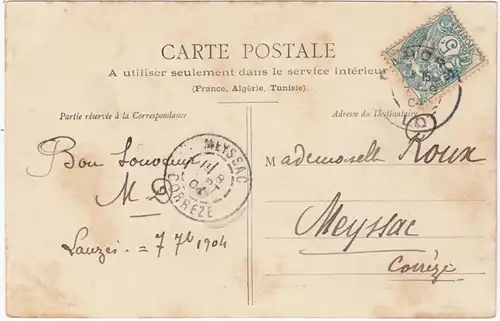 CARTE POSTALE
A utiliser seulement dans le service intérieur
(France, Algérie, Tunisie).
Partie réservée à la Correspondance
Adresse du Destinataire
Bon Souvenir
M D
Lauzès = 7 7b 1904
MEYSSAC
CORREZE
04
Mademoiselle Roux
Meyssac
Corrèze
5
04